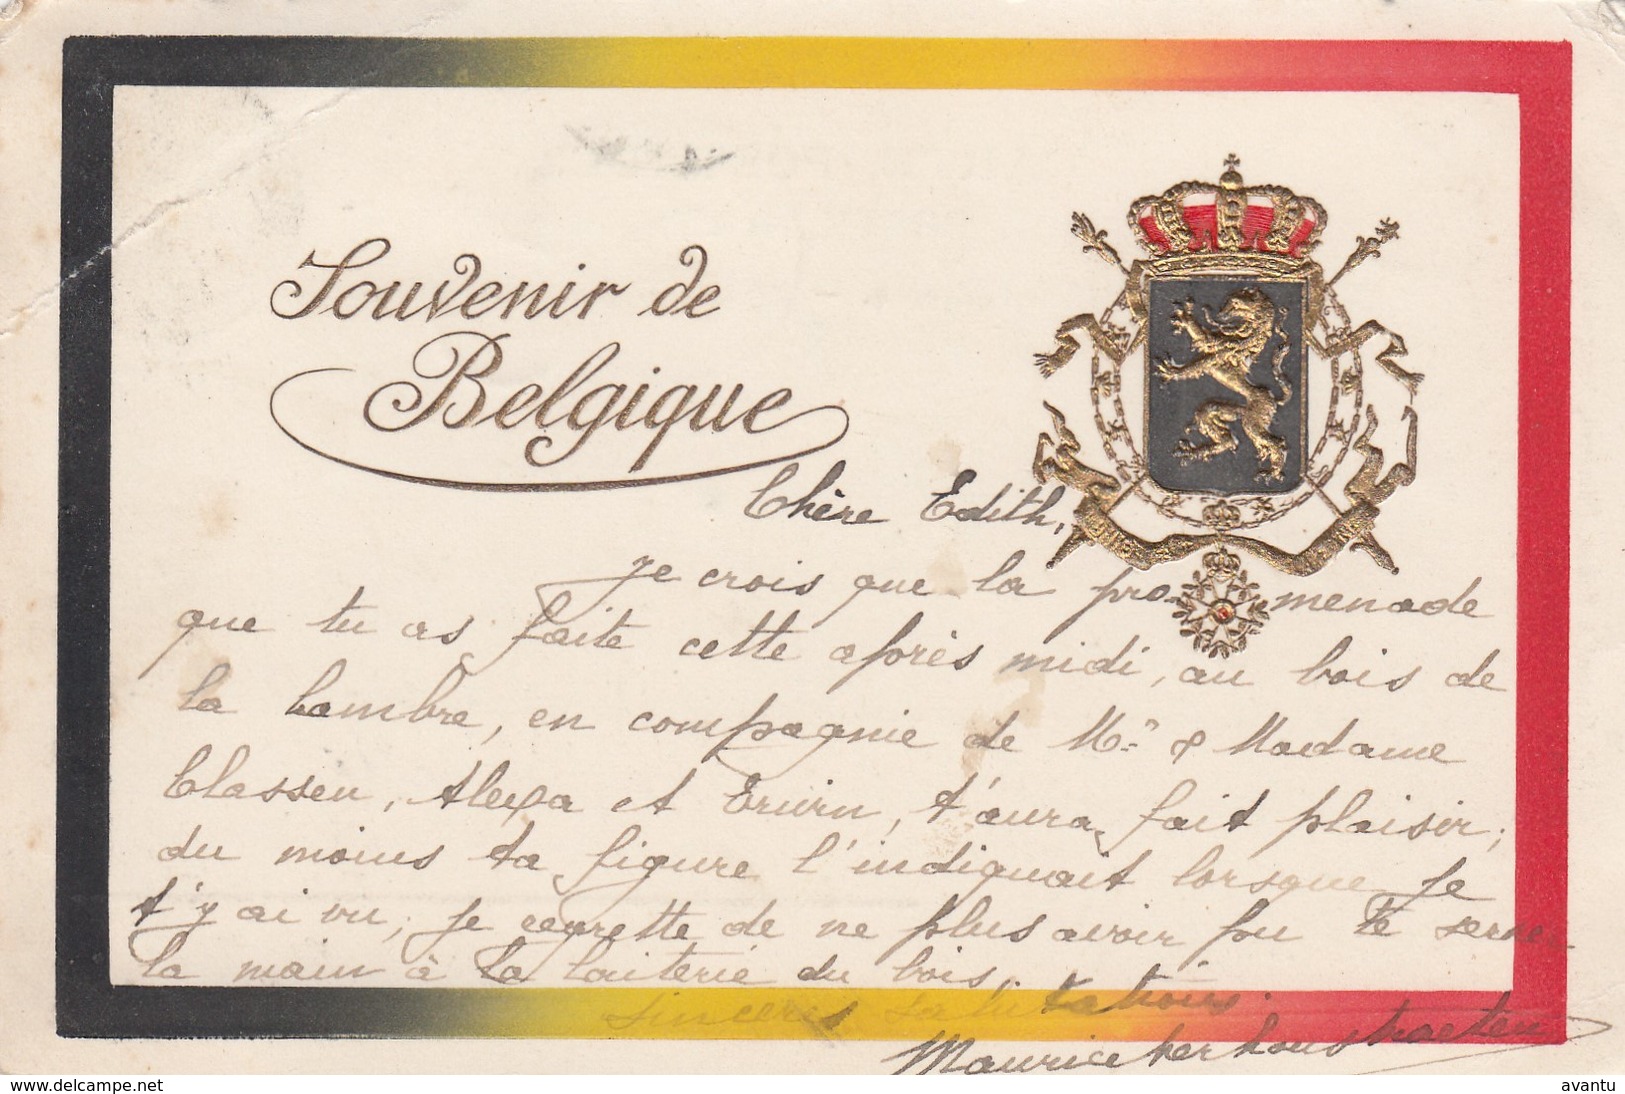 Souvenir de
Belgique
Chère Edith,
je crois que la promenade
que tu as faite cette après midi, au bois de
la Cambre, en compagnie de Mr & Madame
Classen, Alexa et Erwin, t'aura fait plaisir;
du moins ta figure l'indiquait lorsque je
t'y ai vu; je regrette de ne plus avoir pu te serrer
la main à la laiterie du bois.
Sincères salutations.
Maurice Verhoustraeten
delcampe.net
avantu